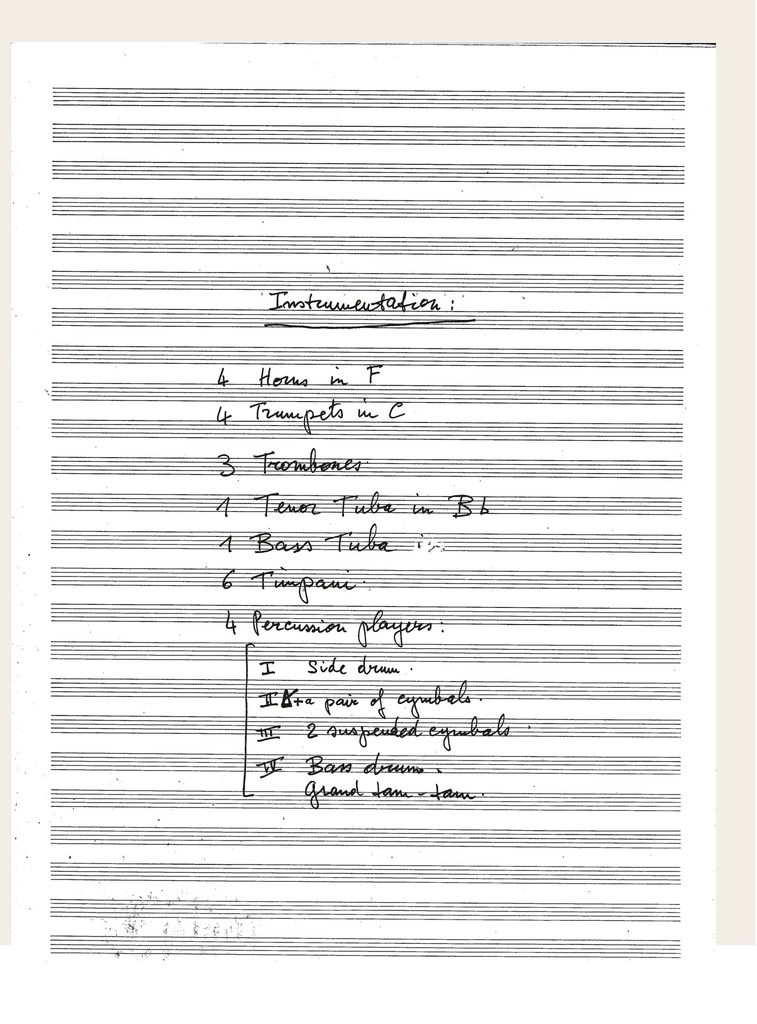 Instrumentation:
4 Horns in F
4 Trumpets in C
3 Trombones
1 Tenor Tuba in Bb
1 Bass Tuba
6 Timpani
4 Percussion players:
I Side drum.
II + a pair of cymbals.
III 2 suspended cymbals
IV Bass drum.
Grand tam-tam.